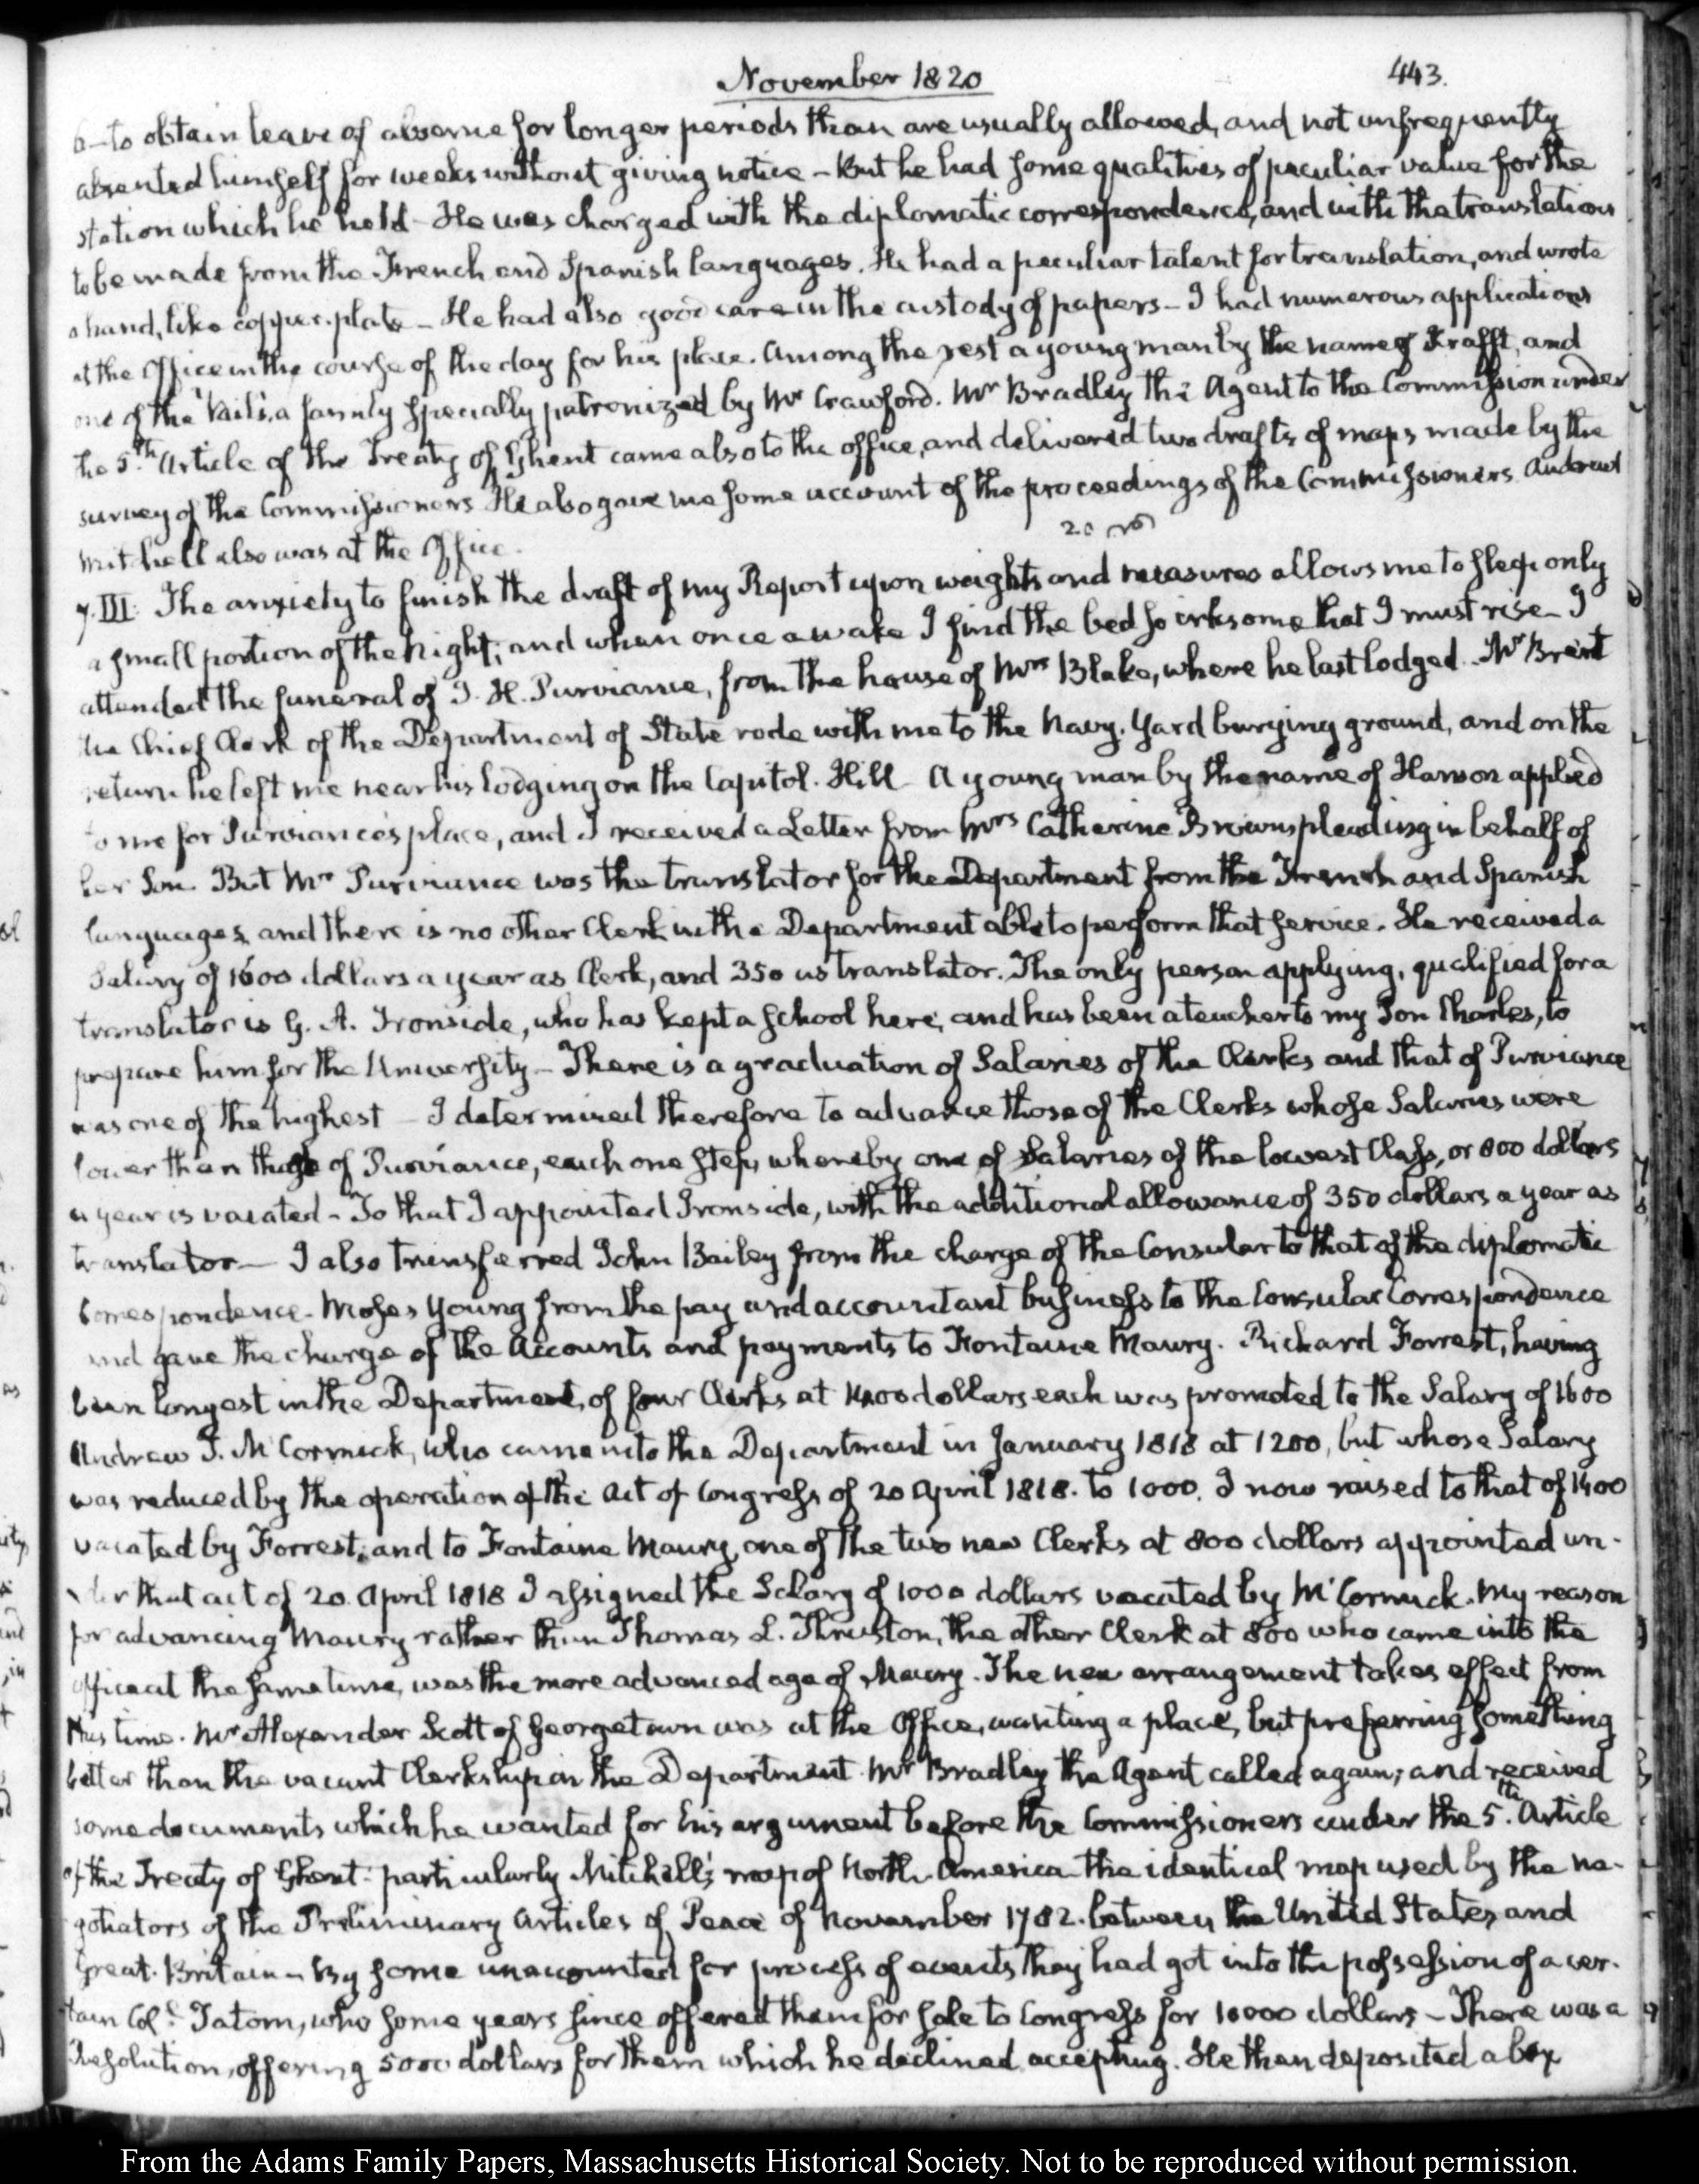 November 1820
443.
to obtain leave of absence for longer periods than are usually allowed, and not unfrequently
absented himself for weeks without giving notice - But he had some qualities of peculiar value for the
station which he held - He was charged with the diplomatic correspondence, and with the translations
to be made from the French and Spanish languages. He had a peculiar talent for translation, and wrote
a hand, like copper-plate - He had also good care in the custody of papers - I had numerous applications
at the Office in the course of the day for his place. Among the rest a young man by the name of Krafft, and
one of the Vail's, a family specially patronized by Mr Crawford. Mr Bradley the Agent to the Commission under
the 5th Article of the Treaty of Ghent came also to the office, and delivered two drafts of maps made by the
survey of the Commissioners He also gave me some account of the proceedings of the Commissioners. Andrew
Mitchell also was at the Office.
7. III. The anxiety to finish the draft of my Report upon weights and measures allows me to sleep only
a small portion of the night; and when once awake I find the bed so irksome that I must rise - I
attended the funeral of J. H. Purviance, from the house of Mrs Blake, where he last lodged. Mr Brent
the Chief Clerk of the Department of State rode with me to the Navy-Yard burying ground, and on the
return he left me near his lodging on the Capitol-Hill - A young man by the name of applied
to me for Purviance's place, and I received a Letter from Mrs Catherine Brown pleading in behalf of
her Son. But Mr Purviance was the translator for the Department from the French and Spanish
languages, and there is no other Clerk in the Department able to perform that service. He received a
Salary of 1600 dollars a year as Clerk, and 350 as translator. The only person applying, qualified for a
translator is G. A. Ironside, who has kept a School here, and has been a teacher to my Son Charles, to
prepare him for the University - There is a graduation of Salaries of the Clerks and that of Purviance
was one of the highest - I determined therefore to advance those of the Clerks whose Salaries were
lower than those of Purviance, each one step, whereby one of Salaries of the lowest Class, or 800 dollars
a year is vacated - To that I appointed Ironside, with the additional allowance of 350 dollars a year as
translator - I also transferred John Bailey from the charge of the Consular to that of the diplomatic
Correspondence - Moses Young from the pay and accountant business to the Consular Correspondence
and gave the charge of the Accounts and payments to Fontaine Maury. Richard Forrest, having
been longest in the Department, of four Clerks at 1400 dollars each was promoted to the Salary of 1600
Andrew T. McCormick, who came into the Department in January 1818 at 1200, but whose Salary
was reduced by the operation of the Act of Congress of 20 April 1818. to 1000. I now raised to that of 1400
vacated by Forrest; and to Fontaine Maury, one of the two new Clerks at 800 dollars appointed un-
der that act of 20. April 1818 I assigned the Salary of 1000 dollars vacated by McCormick. My reason
for advancing Maury rather than Thomas L. Thruston, the other Clerk at 800 who came into the
office at the same time, was the more advanced age of Maury. The new arrangement takes effect from
this time. Mr Alexander Scott of Georgetown was at the Office, wanting a place, but preferring something
better than the vacant Clerkship in the Department. Mr Bradley the Agent called again; and received
some documents which he wanted for his argument before the Commissioners under the 5th Article
of the Treaty of Ghent: particularly Mitchell's map of North-America the identical map used by the ne-
gotiators of the Preliminary Articles of Peace of November 1782. between the United States and
Great-Britain - By some unaccounted for process of events they had got into the possession of a cer-
tain Coll. Tatom, who some years since offered them for sale to Congress for 10000 dollars - There was a
Resolution, offering 5000 dollars for them which he declined accepting. He then deposited a box
From the Adams Family Papers, Massachusetts Historical Society. Not to be reproduced without permission.